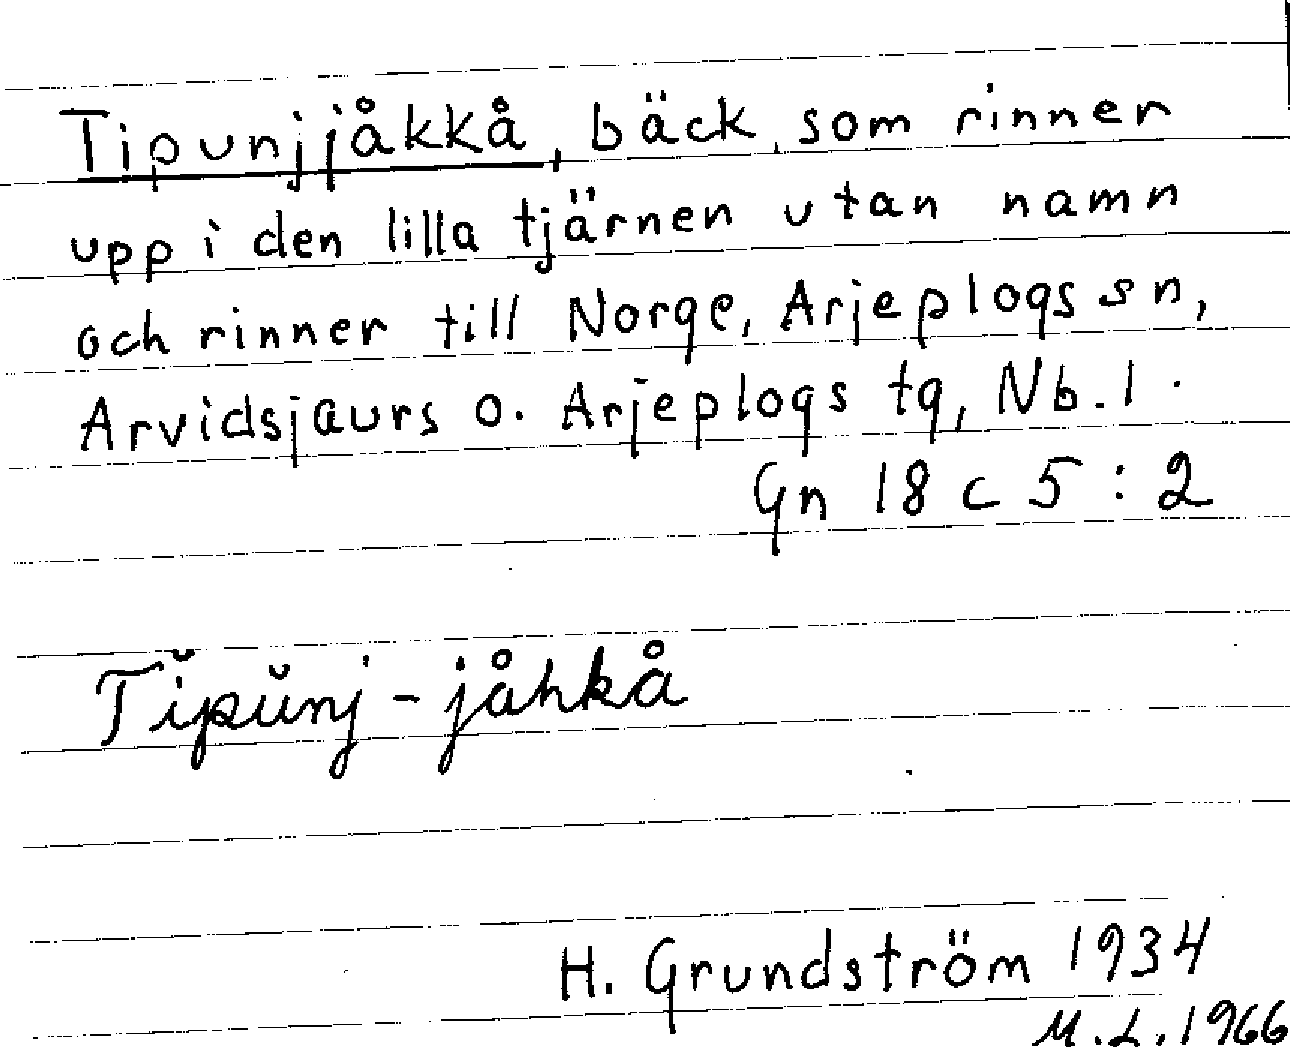 Tipunjjåkkå, bäck, som rinner
upp i den lilla tjärnen utan namn
och rinner till Norge, Arjeplogs sn,
Arvidsjaurs o. Arjeplogs tg, Nb. l.
Gn 18 c 5 : 2
Tĭpŭnj' - jåhkå
H. Grundström 1934
M. L. 1966